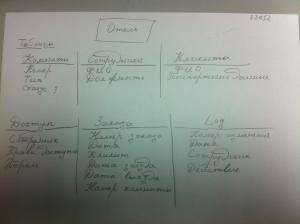 Отель
Таблицы
Комнаты Сотрудники Клиенты
Номер ФИО ФИО
Тип Должность Паспортные данные
Статус
Доступ Заказы Log
Сотрудник Номер заказа Номер
Права доступа Дата Дата
Пароль Клиент Сотрудник
Дата заезда Действие
Дата выезда
Номер комнаты